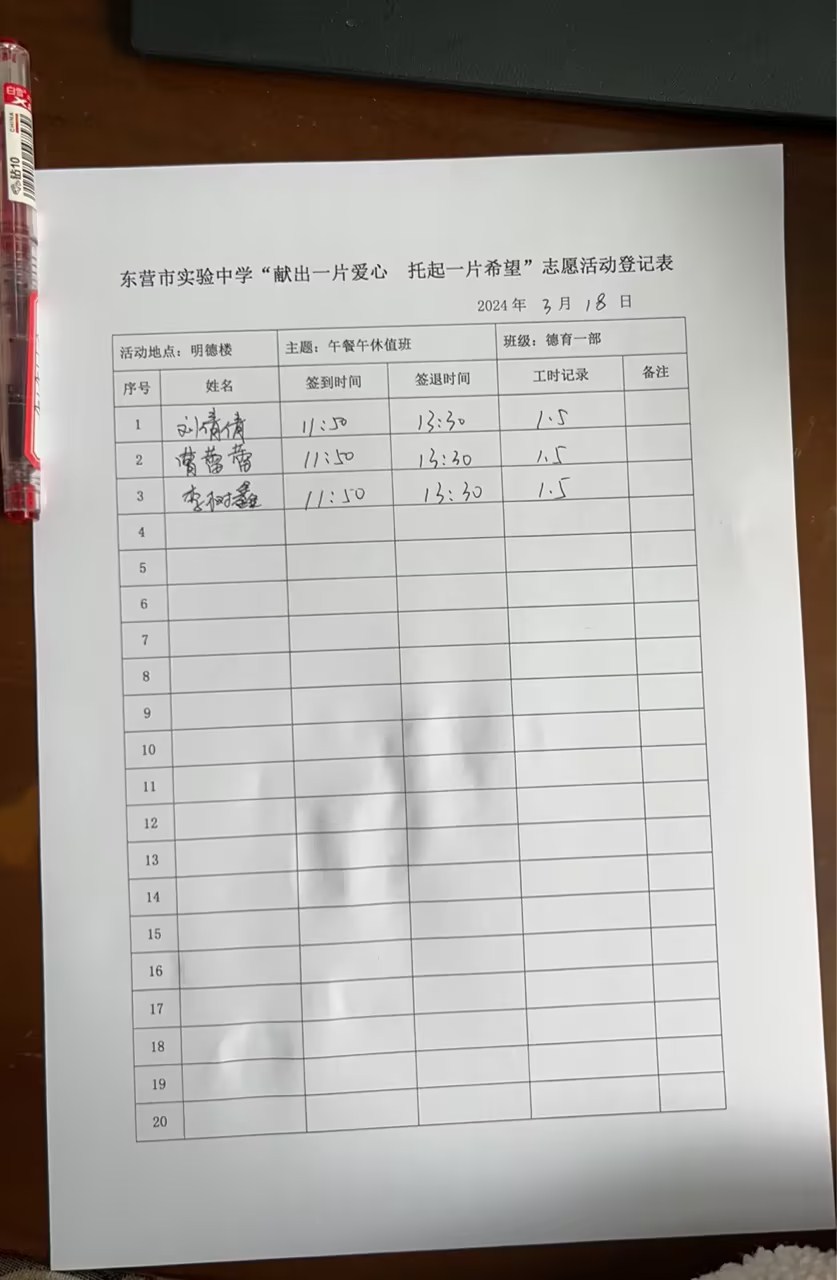 白雪
CHINA
钻10
东营市实验中学“献出一片爱心 托起一片希望”志愿活动登记表
2024 年 3 月 18 日
活动地点：明德楼 主题：午餐午休值班 班级：德育一部
序号 姓名 签到时间 签退时间 工时记录 备注
1 刘倩倩 11:50 13:30 1.5
2 曹蕾蕾 11:50 13:30 1.5
3 李树鑫 11:50 13:30 1.5
4
5
6
7
8
9
10
11
12
13
14
15
16
17
18
19
20